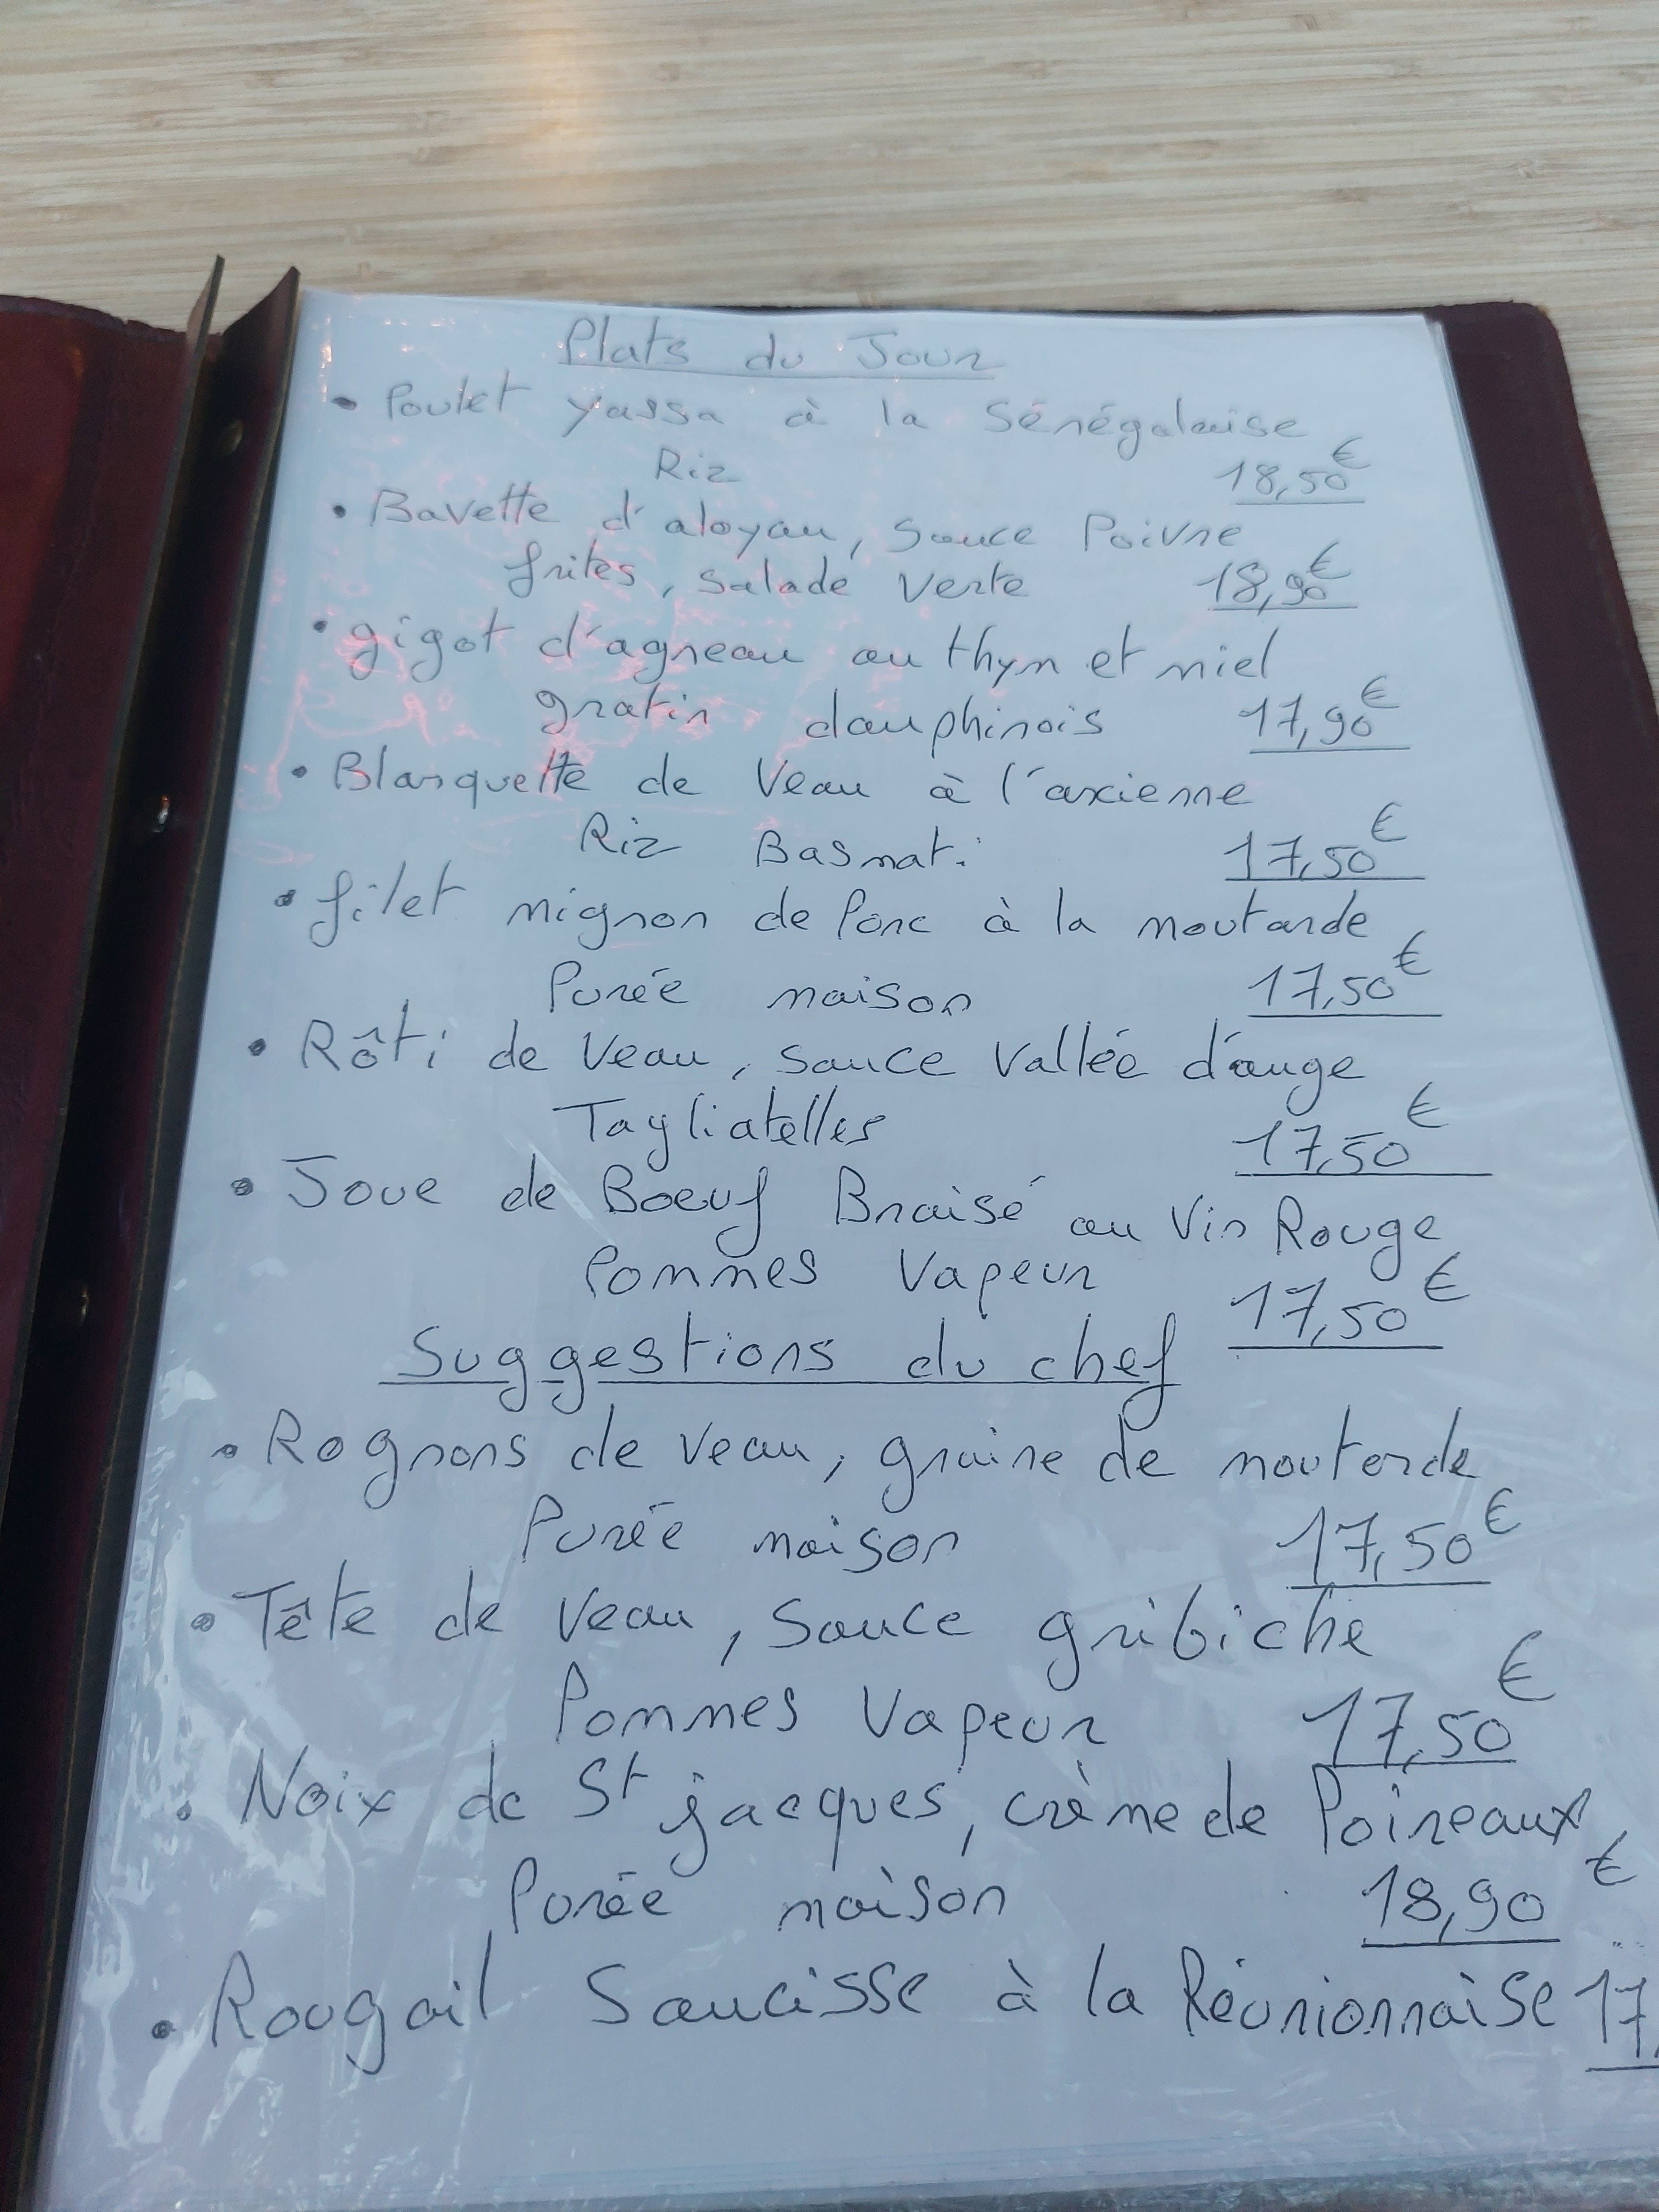 Plats du Jour
• Poulet yassa à la Sénégalaise
Riz 18,50€
• Bavette d'aloyau, sauce Poivre
frites, salade verte 18,90€
• gigot d'agneau au thym et miel
gratin dauphinois 17,90€
• Blanquette de Veau à l'ancienne
Riz Basmati 17,50€
• filet mignon de Porc à la moutarde
Purée maison 17,50€
• Rôti de Veau, sauce Vallée d'auge
Tagliatelles 17,50€
• Joue de Boeuf Braisé au Vin Rouge
Pommes Vapeur 17,50€
Suggestions du chef
• Rognons de Veau, graine de moutarde
Purée maison 17,50€
• Tête de Veau, Sauce gribiche
Pommes Vapeur 17,50€
• Noix de St jacques, crème de Poireaux
Purée maison 18,90€
• Rougail Saucisse à la Réunionnaise 17,